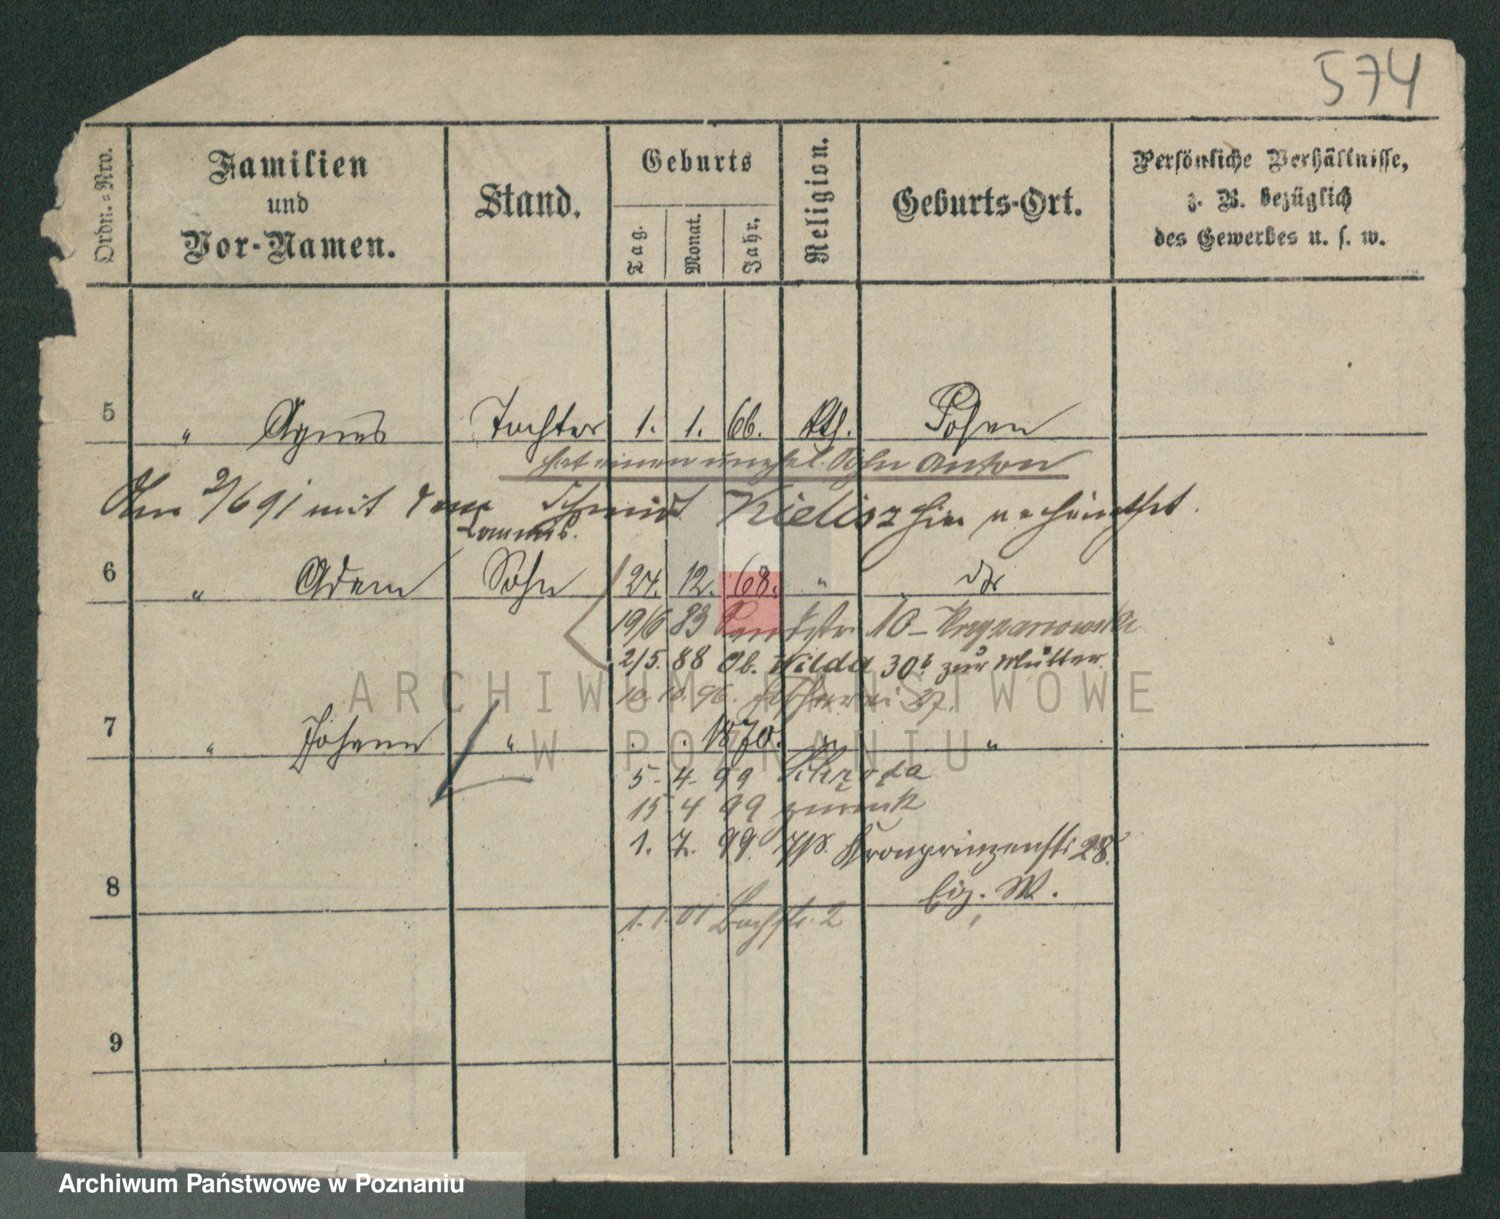 574
Ordn.-Nro.
Familien
und
Vor-Namen.
Stand.
Geburts
Tag.
Monat.
Jahr.
Religion.
Geburts-Ort.
Persönliche Verhältnisse,
z. B. bezüglich
des Gewerbes u. s. w.
5 " Agnes Tochter 1. 1. 66. kth. Posen
hat einen unehel. Sohn Anton
Am 2/6 91 mit dem Schmidt Kieliszhin verheirathet.
6 " Adam Sohn 24. 12. 68. " do
19/6 83 10 - Krzyzanowski
2/5. 88 Ob. Wilda 30b zur Mutter
10. 10. 96. 27.
7 " Johann " 1870. " "
5. 4. 99 Schroda
15 4 99 zurück
1. 7. 99. Kronprinzenstr 28.
Eig. W.
8
1. 1. 01 Bachstr. 2
9
ARCHIWUM PAŃSTWOWE
W POZNANIU
Archiwum Państwowe w Poznaniu